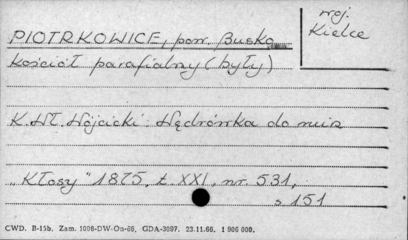 woj.
Kielce
PIOTRKOWICE, pow. Busko
Kościół parafialny (były)
K.Wł. Wójcicki: Wędrówka do ruin
„Kłosy" 1875, t. XXI, nr. 531,
s 151
CWD. B-15b. Zam. 1006-DW-On-66. GDA-3097. 23.11.66. 1 906 000.